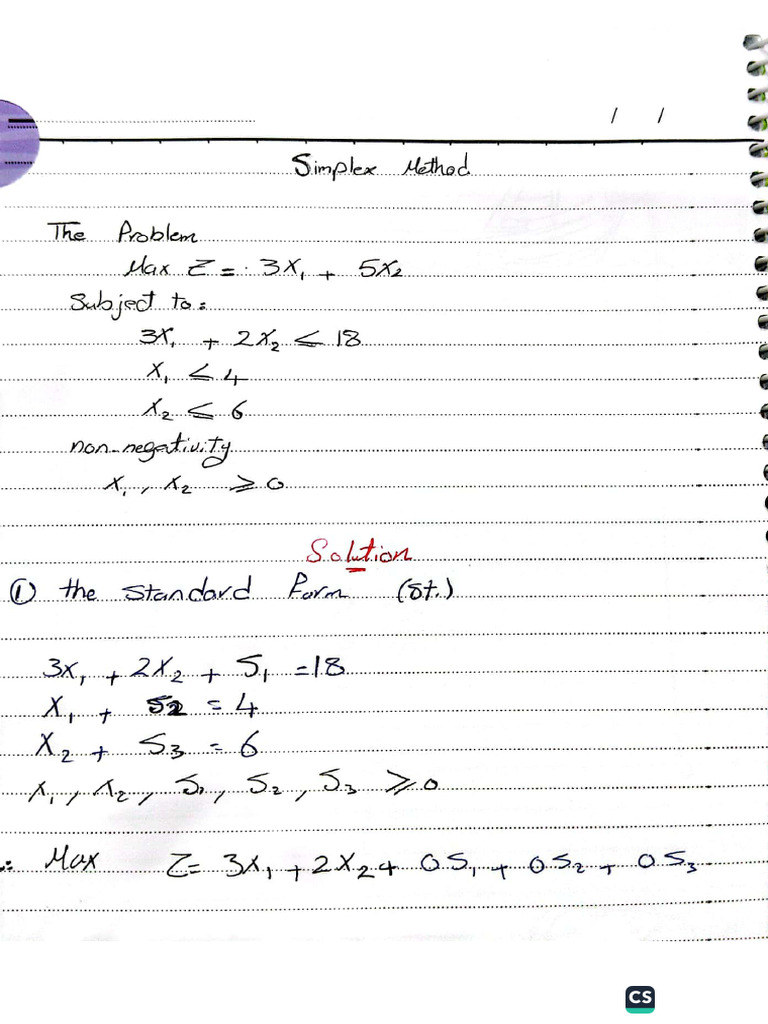 / /
Simplex Method
The Problem
Max Z = 3x₁ + 5x₂
Subject to:
3x₁ + 2x₂ ≤ 18
x₁ ≤ 4
x₂ ≤ 6
non-negativity
x₁, x₂ ≥ 0
Solution
① the standard Form (St.)
3x₁ + 2x₂ + S₁ = 18
x₁ + S2 = 4
x₂ + S₃ = 6
x₁, x₂, S₁, S₂, S₃ ≥ 0
∴ Max Z = 3x₁ + 2x₂ + 0S₁ + 0S₂ + 0S₃
CS